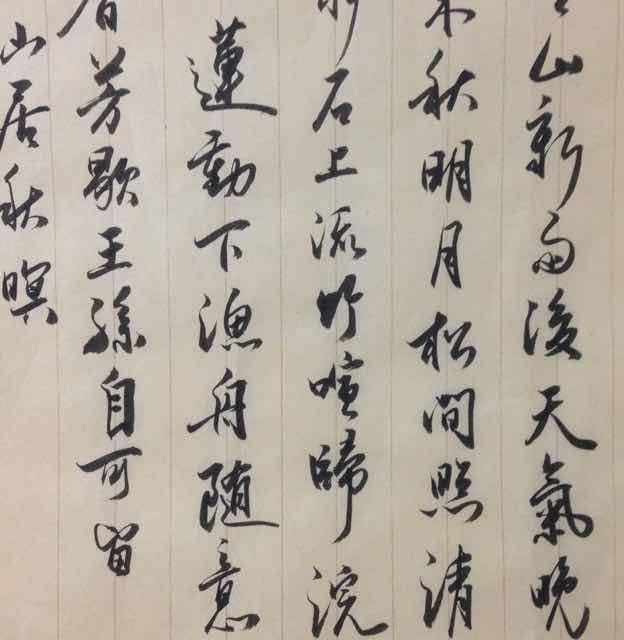 山新雨後天氣晚
秋明月松間照清
石上流竹喧歸浣
蓮動下漁舟随意
芳歇王孫自可留
山居秋暝